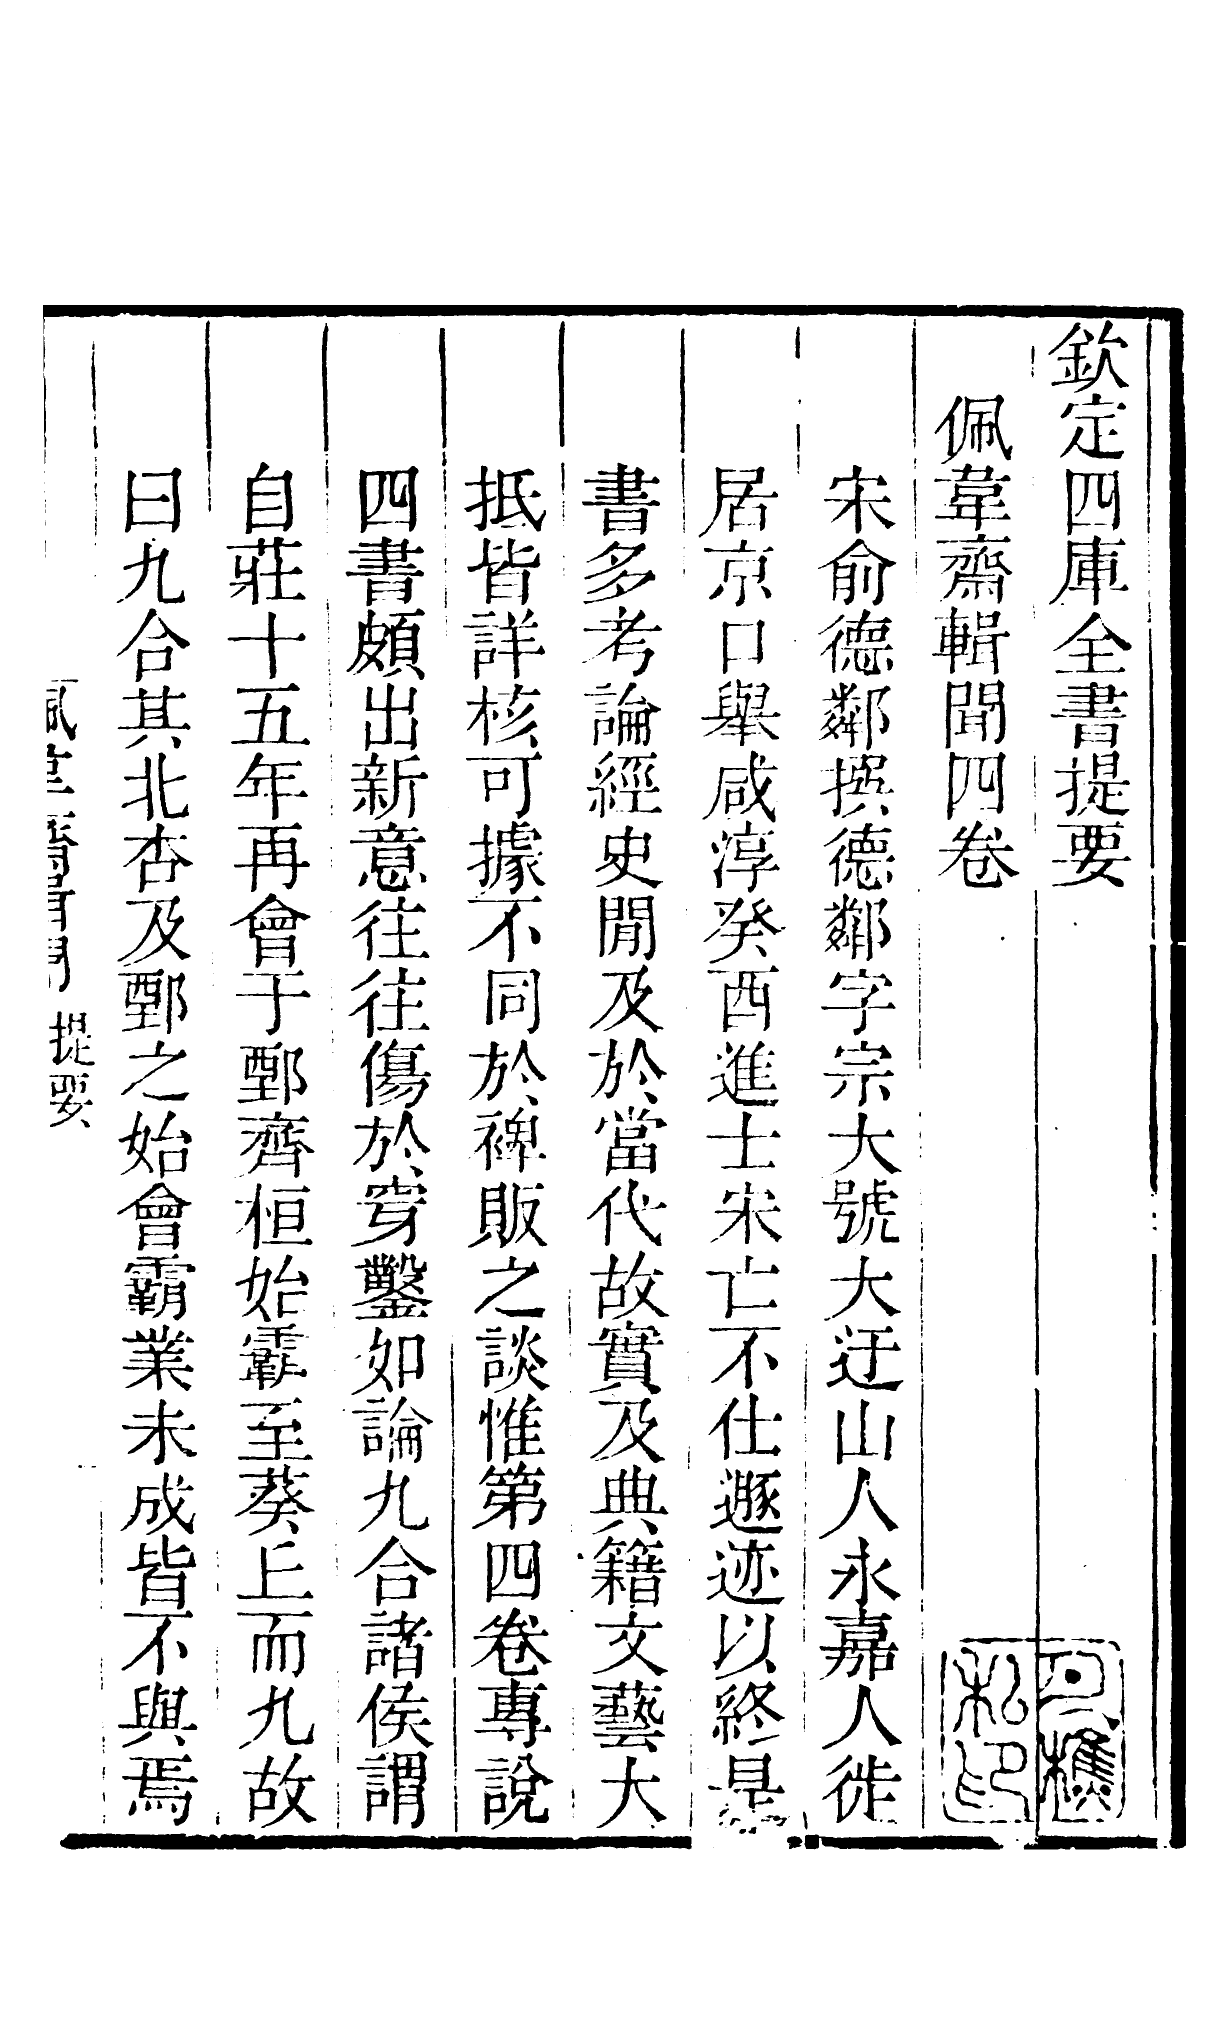 欽定四庫全書提要
佩韋齋輯聞四卷
宋俞德鄰撰德鄰字宗大號大迂山人永嘉人徙
居京口舉咸淳癸酉進士宋亡不仕遯迹以終是
書多考論經史閒及於當代故實及典籍文藝大
抵皆詳核可據不同於稗販之談惟第四卷專說
四書頗出新意往往傷於穿鑿如論九合諸侯謂
自莊十五年再會于鄄齊桓始霸至葵上而九故
曰九合其北杏及鄄之始會霸業未成皆不與焉
提要